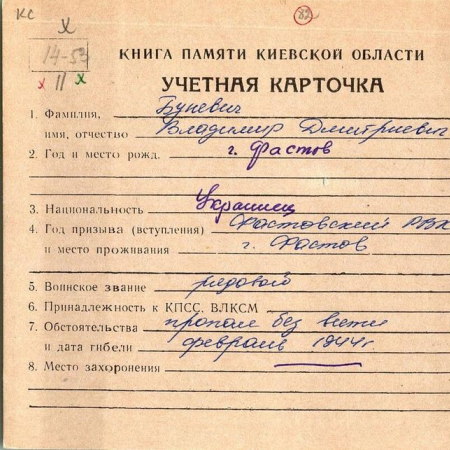 КС
82
Х
14-53
х 11 х
КНИГА ПАМЯТИ КИЕВСКОЙ ОБЛАСТИ
УЧЕТНАЯ КАРТОЧКА
1. Фамилия, Буневич
имя, отчество Владимир Дмитриевич
2. Год и место рожд. г. Фастов
3. Национальность Украинец
4. Год призыва (вступления) Фастовский РВК
и место проживания г. Фастов
5. Воинское звание рядовой
6. Принадлежность к КПСС, ВЛКСМ
7. Обстоятельства пропал без вести
и дата гибели февраль 1944г
8. Место захоронения